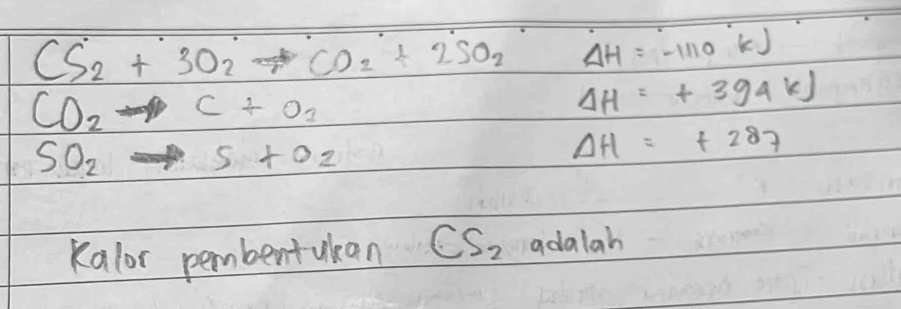 CS₂ + 3O₂ → CO₂ + 2SO₂ ΔH = -1110 kJ
CO₂ → C + O₂ ΔH = + 394 kJ
SO₂ → S + O₂ ΔH = + 287
Kalor pembentukan CS₂ adalah